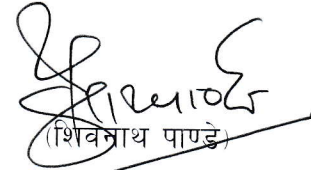 (शिवनाथ पाण्डे)